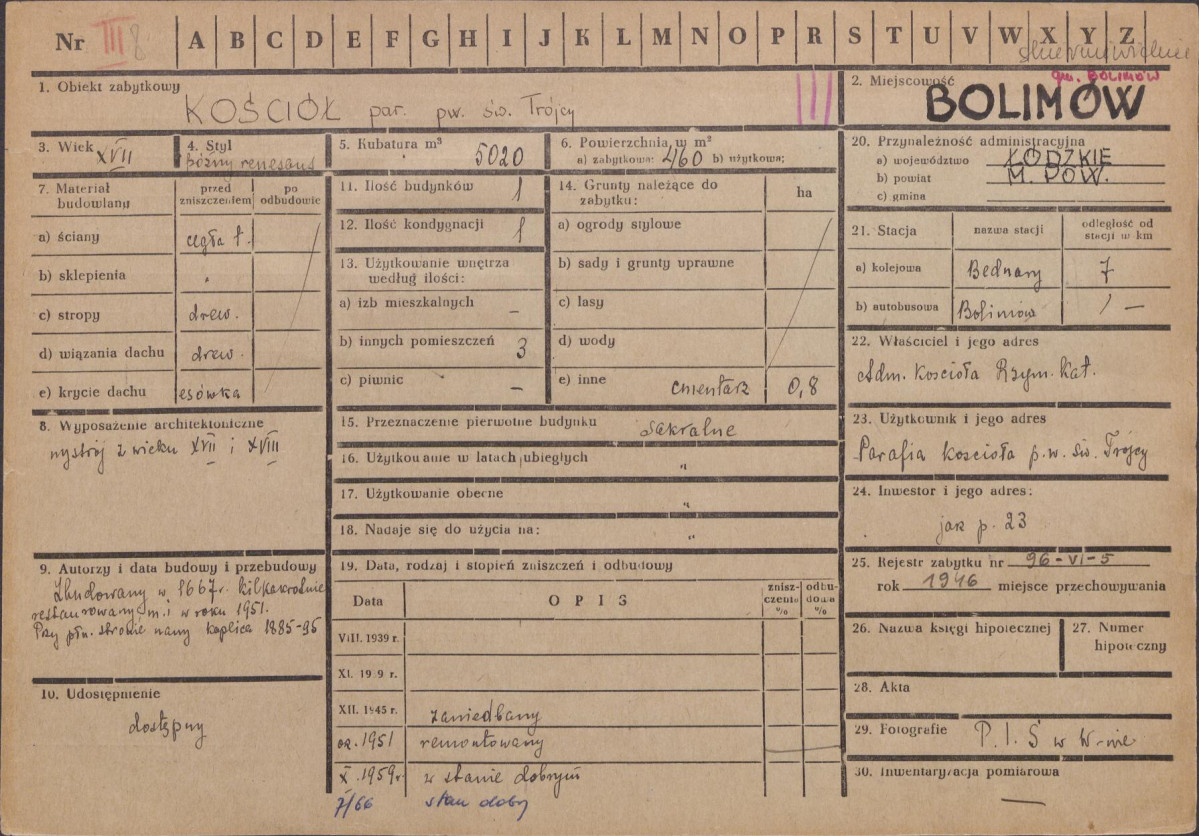 Nr III 8 A B C D E F G H I J K L M N O P R S T U V W X Y Z
skierniewickie
1. Obiekt zabytkowy
KOŚCIÓŁ par. pw. św. Trójcy
III
2. Miejscowość
gm. BOLIMÓW
BOLIMÓW
3. Wiek
XVII
4. Styl
późny renesans
5. Kubatura m³
5020
6. Powierzchnia w m²
a) zabytkowa: 460 b) użytkowa:
7. Materiał budowlany
przed zniszczeniem
po odbudowie
a) ściany cegła t.
b) sklepienia
c) stropy drew.
d) wiązania dachu drew.
e) krycie dachu esówka
8. Wyposażenie architektoniczne
wystrój z wieku XVII i XVIII
9. Autorzy i data budowy i przebudowy
Zbudowany w 1667 r. kilkakrotnie
restaurowany m. i w roku 1951.
Przy płn. stronie nawy kaplica 1885-95
10. Udostępnienie
dostępny
11. Ilość budynków 1
12. Ilość kondygnacji 1
13. Użytkowanie wnętrza
według ilości:
a) izb mieszkalnych –
b) innych pomieszczeń 3
c) piwnic –
14. Grunty należące do
zabytku:
ha
a) ogrody stylowe
b) sady i grunty uprawne
c) lasy
d) wody
e) inne cmentarz 0,8
15. Przeznaczenie pierwotne budynku sakralne
16. Użytkowanie w latach ubiegłych "
17. Użytkowanie obecne "
18. Nadaje się do użycia na: "
19. Data, rodzaj i stopień zniszczeń i odbudowy
Data
OPIS
zniszczenia %
odbudowa %
VIII. 1939 r.
XI. 1939 r.
XII. 1945 r. zaniedbany
ok. 1951 remontowany
X. 1959 r. w stanie dobrym
7/66 stan dobry
20. Przynależność administracyjna
a) województwo ŁÓDZKIE
b) powiat M. POW.
c) gmina
21. Stacja
nazwa stacji
odległość od
stacji w km
a) kolejowa Bednary 7
b) autobusowa Bolimów / –
22. Właściciel i jego adres
Adm. Kościoła Rzym. Kat.
23. Użytkownik i jego adres
Parafia kościoła p.w. św. Trójcy
24. Inwestor i jego adres:
jak p. 23
25. Rejestr zabytku nr 96-VI-5
rok 1946 miejsce przechowywania
26. Nazwa księgi hipotecznej
27. Numer
hipoteczny
28. Akta
29. Fotografie P. I. S w W-wie
30. Inwentaryzacja pomiarowa
—